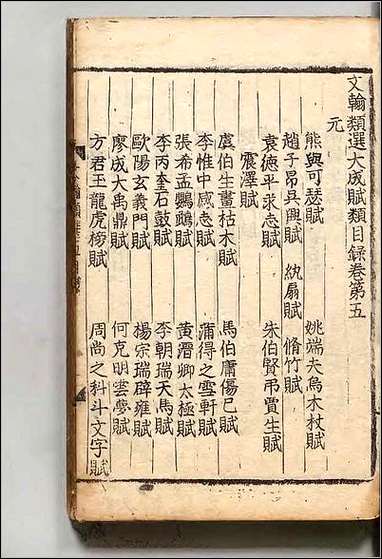 文翰類選大成賦類目録卷第五
元
熊與可瑟賦 姚端夫烏木杖賦
趙子昂吳興賦 紈扇賦 脩竹賦
袁德平求志賦 朱伯賢弔賈生賦
震澤賦
虞伯生畫枯木賦 馬伯庸傷已賦
李惟中感志賦 蒲得之雪軒賦
張希孟鸚鵡賦 黄潛卿太極賦
李丙奎石鼓賦 李朝瑞天馬賦
歐陽玄義門賦 楊宗瑞辟雍賦
廖成大禹鼎賦 何克明雲夢賦
方君王龍虎榜賦 周尚之科斗文字賦